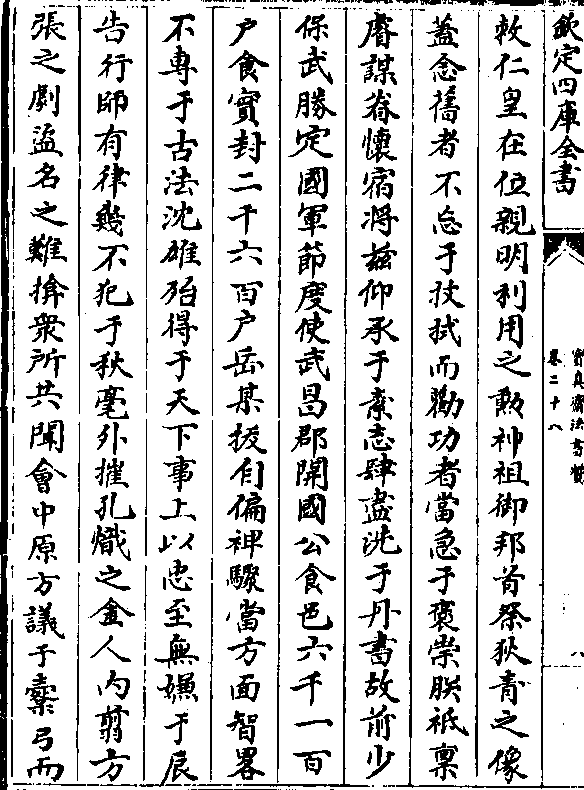 欽定四庫全書
寶真齋法書贊
卷二十八
八
敕仁皇在位親明利用之勲神祖御邦首祭狄青之像
蓋念舊者不忘于抆拭而勸功者當急于褒崇朕祗稟
睿謀眷懷宿將兹仰承于素志肆盡洗于丹書故前少
保武勝定國軍節度使武昌郡開國公食邑六千一百
户食實封二千六百户岳某拔自偏裨驟當方面智畧
不專于古法沈雄殆得于天下事上以忠至無嫌于辰
告行師有律幾不犯于秋毫外摧孔熾之金人内翦方
張之劇盜名之難揜衆所共聞會中原方議于櫜弓而